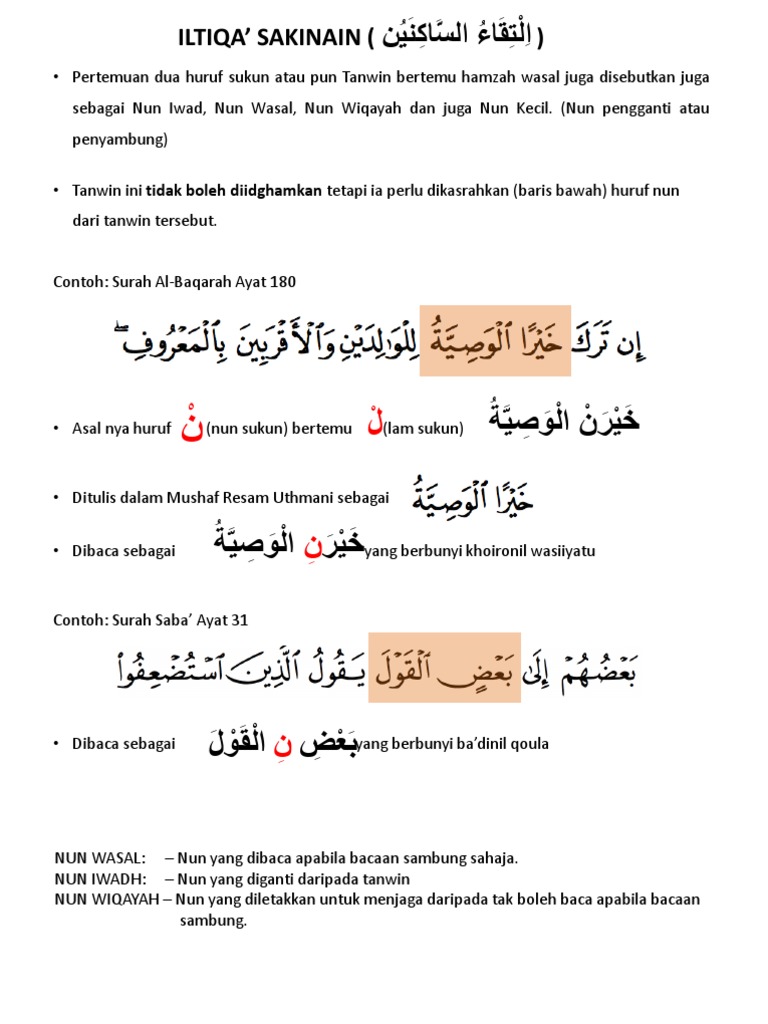 ILTIQA’ SAKINAIN ( اِلْتِقَاءُ السَّاكِنَيْنِ )
• Pertemuan dua huruf sukun atau pun Tanwin bertemu hamzah wasal juga disebutkan juga
sebagai Nun Iwad, Nun Wasal, Nun Wiqayah dan juga Nun Kecil. (Nun pengganti atau
penyambung)
• Tanwin ini tidak boleh diidghamkan tetapi ia perlu dikasrahkan (baris bawah) huruf nun
dari tanwin tersebut.
Contoh: Surah Al-Baqarah Ayat 180
إِن تَرَكَ خَيْرًا ٱلْوَصِيَّةُ لِلْوَٰلِدَيْنِ وَٱلْأَقْرَبِينَ بِٱلْمَعْرُوفِ ۖ
• Asal nya huruf نْ (nun sukun) bertemu لْ (lam sukun) خَيْرَنْ الْوَصِيَّةُ
• Ditulis dalam Mushaf Resam Uthmani sebagai خَيْرًا ٱلْوَصِيَّةُ
• Dibaca sebagai خَيْرَنِ الْوَصِيَّةُ yang berbunyi khoironil wasiiyatu
Contoh: Surah Saba’ Ayat 31
بَعْضُهُمْ إِلَىٰ بَعْضٍ ٱلْقَوْلَ يَقُولُ ٱلَّذِينَ ٱسْتُضْعِفُوا۟
• Dibaca sebagai بَعْضِ نِ الْقَوْلَ yang berbunyi ba’dinil qoula
NUN WASAL: – Nun yang dibaca apabila bacaan sambung sahaja.
NUN IWADH: – Nun yang diganti daripada tanwin
NUN WIQAYAH – Nun yang diletakkan untuk menjaga daripada tak boleh baca apabila bacaan
sambung.